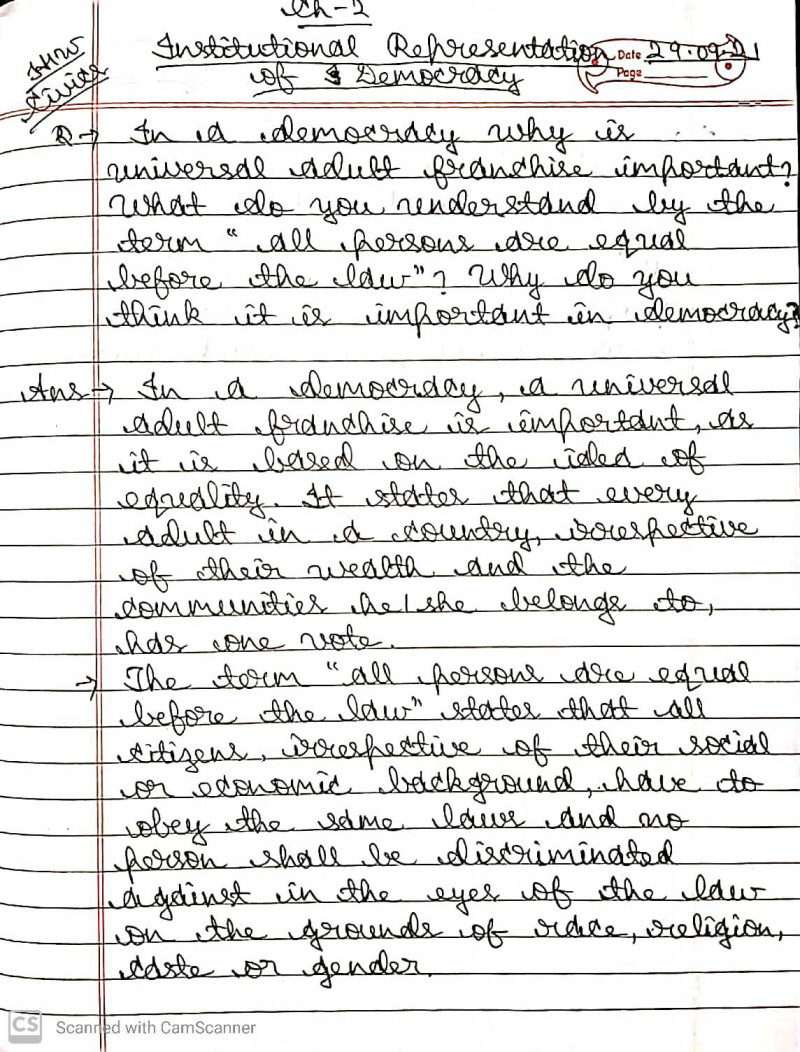 Ch-2
Institutional Representation
of Democracy
Date 29.09.21
Page
H/W
Civics
Q→ In a democracy why is
universal adult franchise important?
What do you understand by the
term "all persons are equal
before the law"? Why do you
think it is important in democracy?
Ans→ In a democracy, a universal
adult franchise is important, as
it is based on the idea of
equality. It states that every
adult in a country, irrespective
of their wealth and the
communities he/she belongs to,
has one vote.
→ The term "all persons are equal
before the law" states that all
citizens, irrespective of their social
or economic background, have to
obey the same laws and no
person shall be discriminated
against in the eyes of the law
on the grounds of race, religion,
caste or gender.
CS Scanned with CamScanner